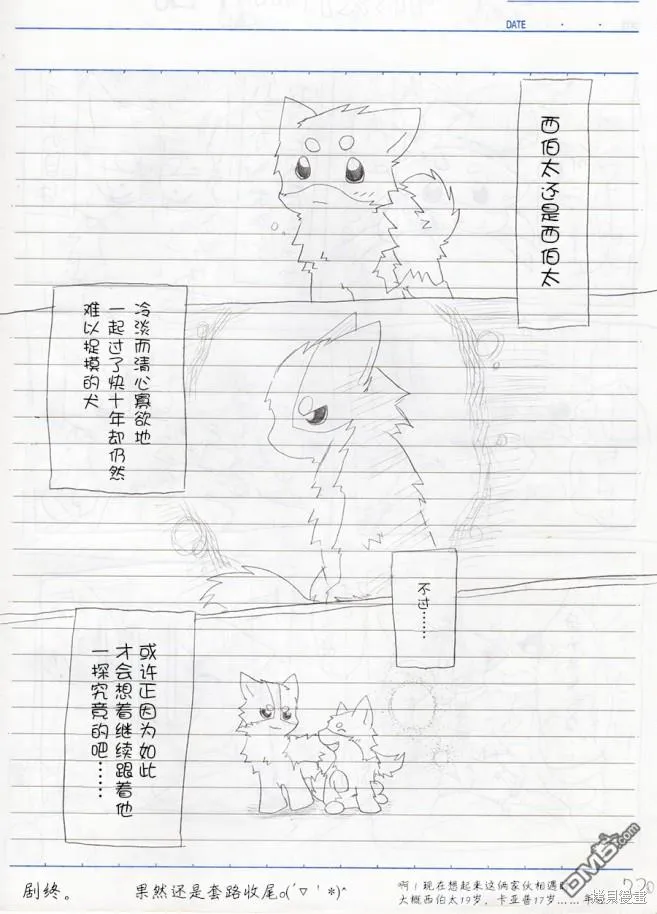 DATE
西伯太还是西伯太
冷淡而清心寡欲地
一起过了快十年却仍然
难以捉摸的犬
不过……
或许正因为如此
才会想着继续跟着他
一探究竟的吧……
剧终。
果然还是套路收尾o(´▽｀*)^
啊！现在想起来这俩家伙相遇
大概西伯太19岁，卡亚普17岁……年
DM5.com
220